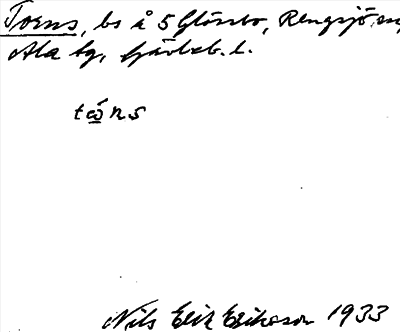 Torns, bs å 5 Glössbo, Rengsjö sn,
Ala tg, Gävleb. l.
tǻns
Nils Erik Eriksson 1933